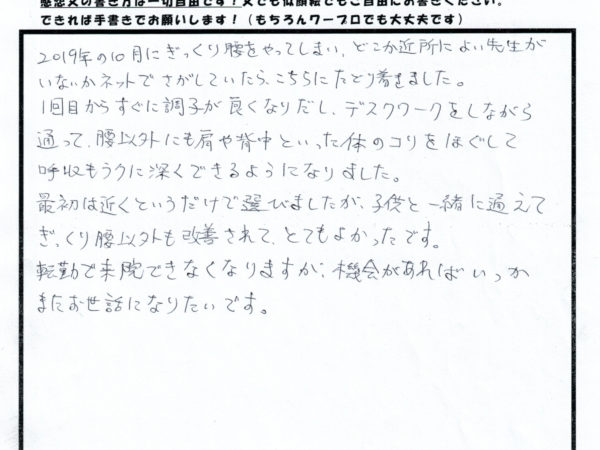 感想文の書き方は一切自由です！文でも似顔絵でもご自由にお書きください。
できれば手書きでお願いします！（もちろんワープロでも大丈夫です）
2019年の10月にぎっくり腰をやってしまい、どこか近所によい先生が
いないかネットでさがしていたら、こちらにたどり着きました。
1回目からすぐに調子が良くなりだし、デスクワークをしながら
通って、腰以外にも肩や背中といった体のコリをほぐして
呼収もラクに深くできるようになりました。
最初は近くというだけで選びましたが、子供と一緒に通えて
ぎっくり腰以外も改善されて、とてもよかったです。
転勤で来院できなくなりますが、機会があればいつか
またお世話になりたいです。